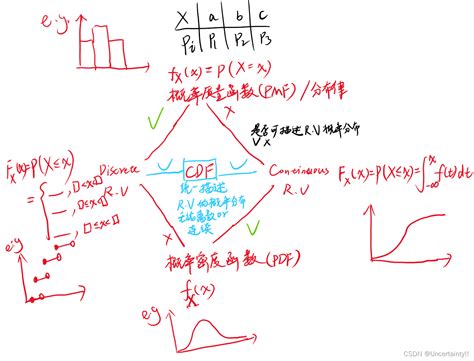 e.g.
X a b c
Pi P1 P2 P3
fx(x)=P(X=x)
概率质量函数(PMF)/分布律
是否可描述R.V概率分布
✓ ✗
Fx(x)=P(X≤x)
=
□≤x≤□
□≤x≤□
□≤x≤□
e.g
Discrete
R.V
CDF
统一描述
R.V的概率分布
无论离散or
连续
Continuous
R.V.
Fx(x)=P(X≤x)=∫_{-∞}^{x} f(t)dt
概率密度函数(PDF)
fx(x)
e.g
CSDN @Uncertainty!!